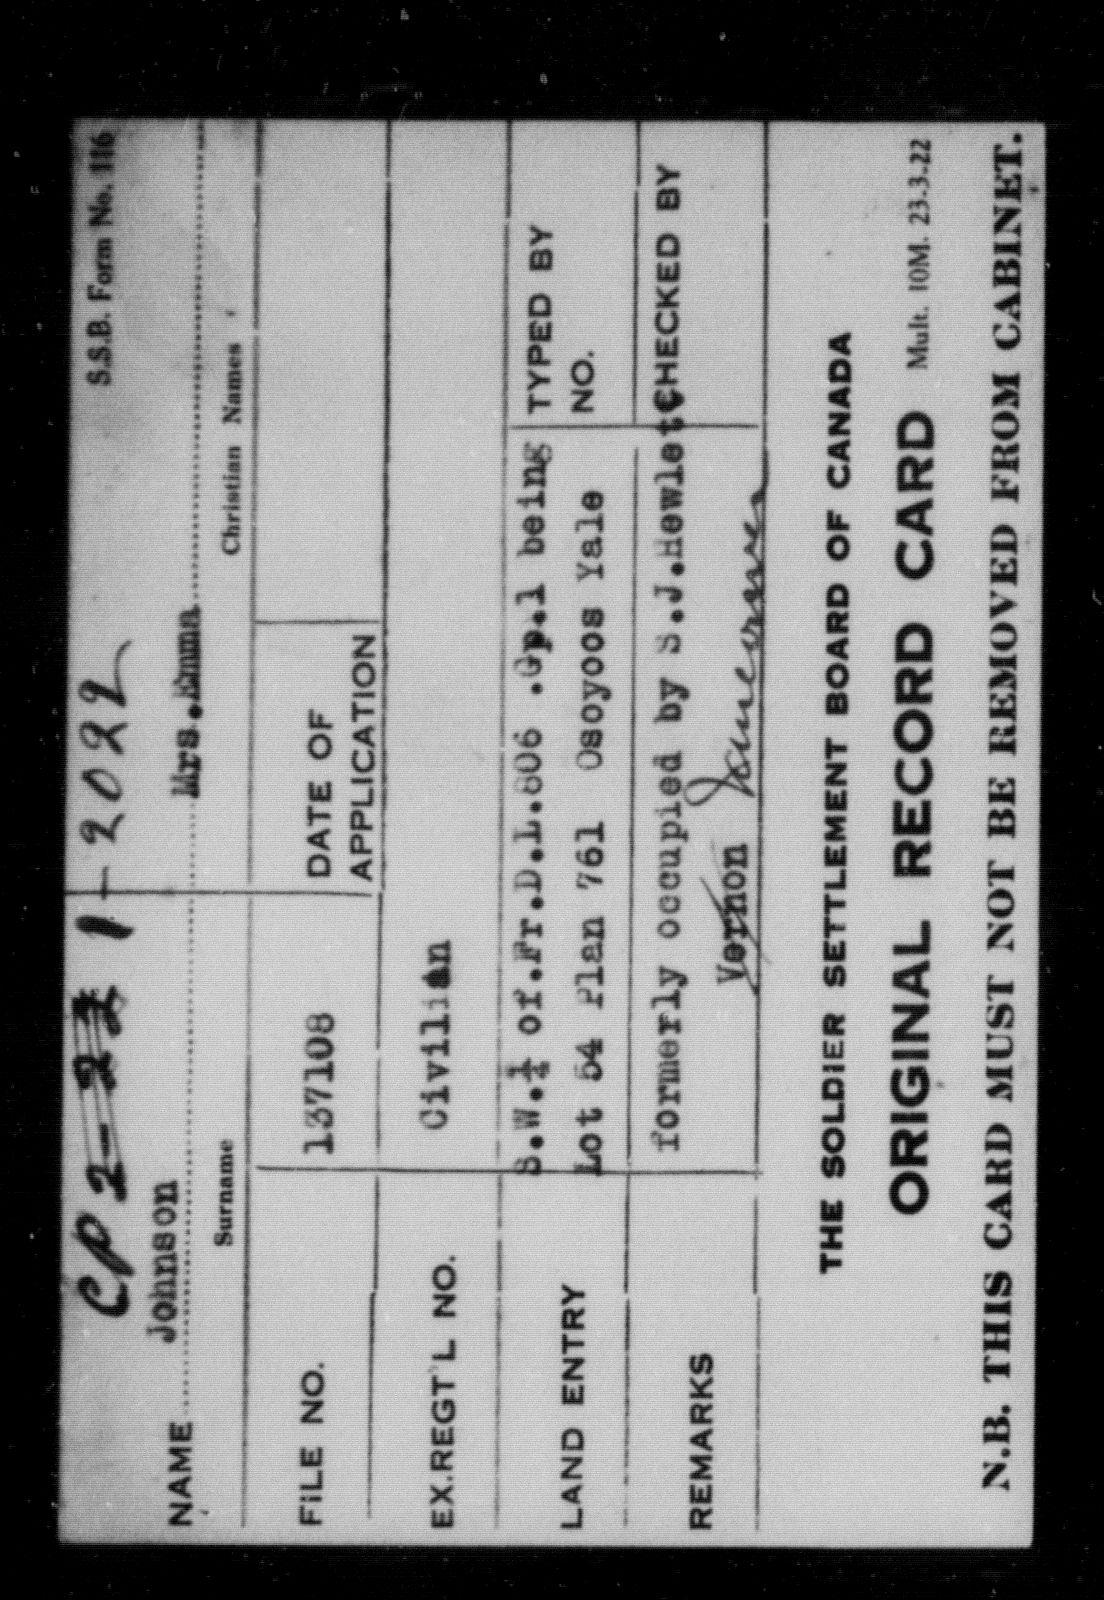 S.S.B. Form No. 116
CP 2-22 1-2022
NAME Johnson Mrs.Emma
Surname Christian Names
FILE NO. 137108 DATE OF APPLICATION
EX.REGT'L NO. Civilian
LAND ENTRY S.W.¼ of.Fr.D.L.606 .Gp.1 being TYPED BY
Lot 54 Plan 761 Osoyoos Yale NO.
REMARKS formerly occupied by S.J.Hewlett CHECKED BY
Vernon Vancouver
THE SOLDIER SETTLEMENT BOARD OF CANADA
ORIGINAL RECORD CARD Mult. 10M. 23-3-22
N.B. THIS CARD MUST NOT BE REMOVED FROM CABINET.